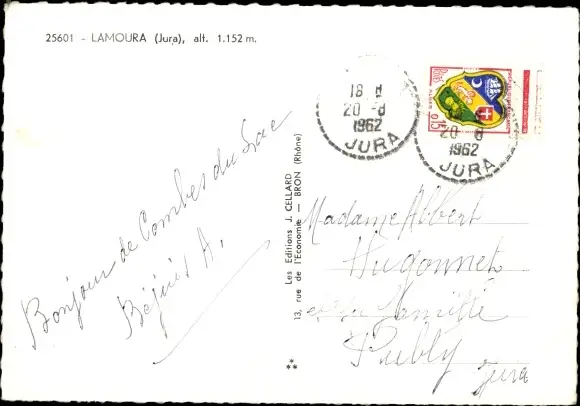 25601 - LAMOURA (Jura), alt. 1.152 m.
Bonjour de Combes du Lac
Béjuis A.
Les Editions J. CELLARD
13, rue de l'Economie — BRON (Rhône)
18 H
20 -8
1962
JURA
20 8
1962
JURA
0,15
Madame Albert
Hugonnet
et sa famille
Publy
Jura